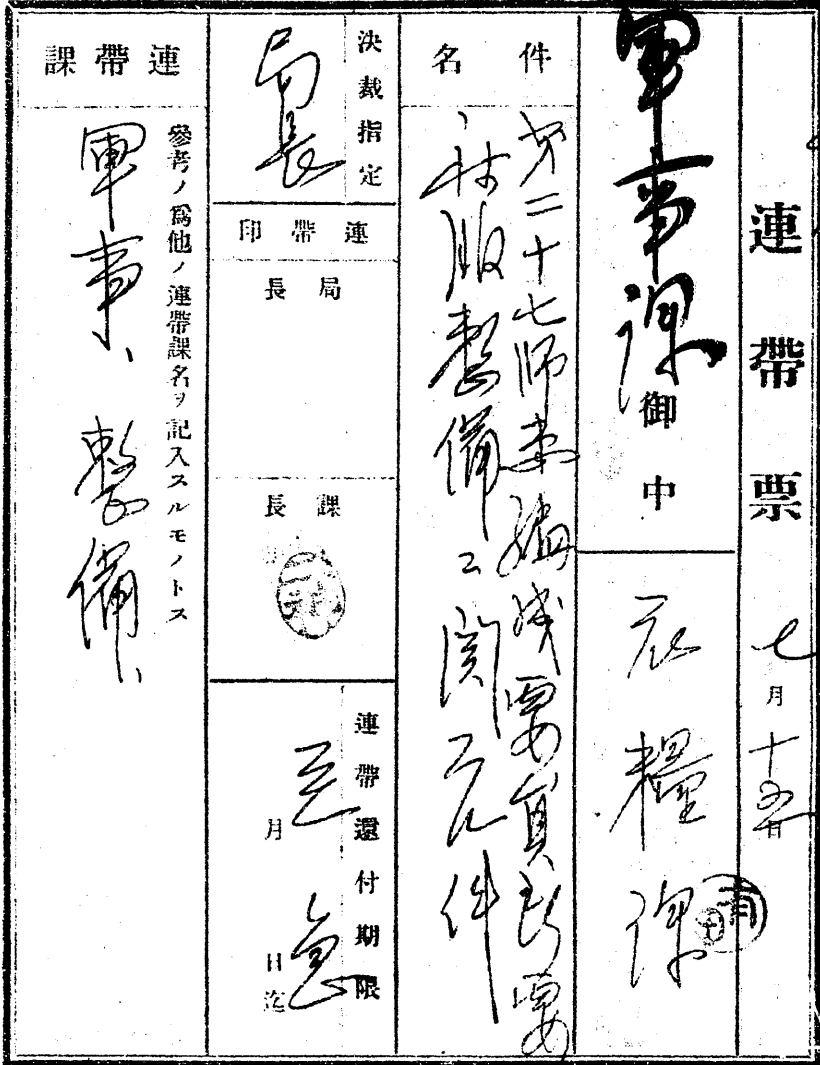 連帶票
七月十五日
軍事課御中
衣糧課
件名
第二十七師団編成要員所要
被服整備ニ関スル件
決裁指定
局長
連帶印
局長
課長
連帶還付期限
至急
月 日迄
連帶課
參考ノ爲他ノ連帶課名ヲ記入スルモノトス
軍事、整備、